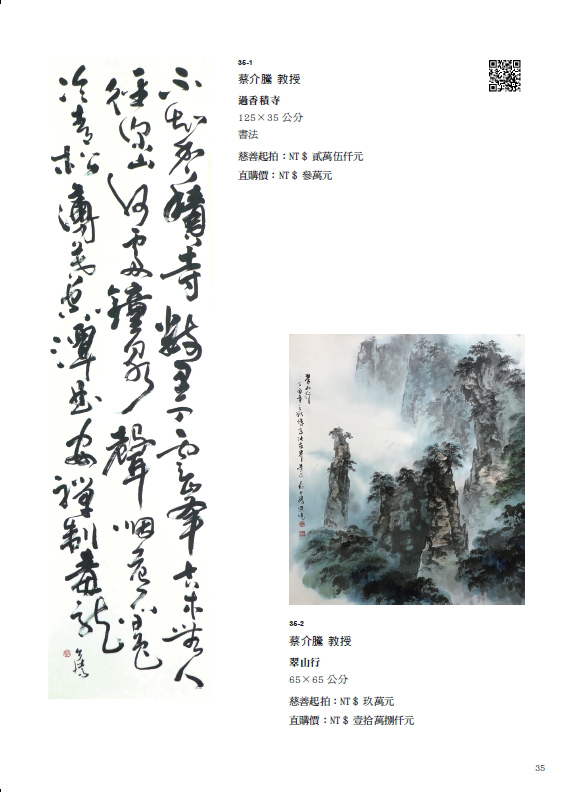 不知香積寺數里入雲峯古木無人
徑深山何處鐘泉聲咽危石日色
冷青松薄暮空潭曲安禪制毒龍
介騰
35-1
蔡介騰 教授
過香積寺
125×35 公分
書法
慈善起拍：NT $ 貳萬伍仟元
直購價：NT $ 參萬元
翠山行
35-2
蔡介騰 教授
翠山行
65×65 公分
慈善起拍：NT $ 玖萬元
直購價：NT $ 壹拾萬捌仟元
35